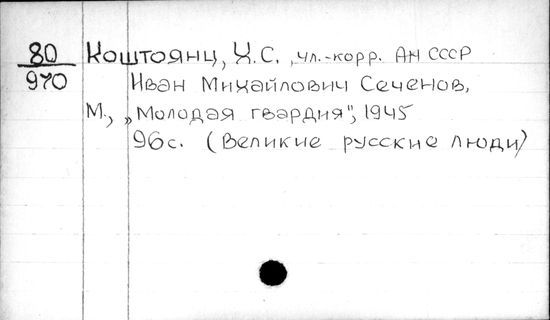 80 Коштоянц, Х.С. , чл.-корр. АН СССР
970 Иван Михайлович Сеченов,
М., „Молодая гвардия", 1945
96с. (Великие русские люди)